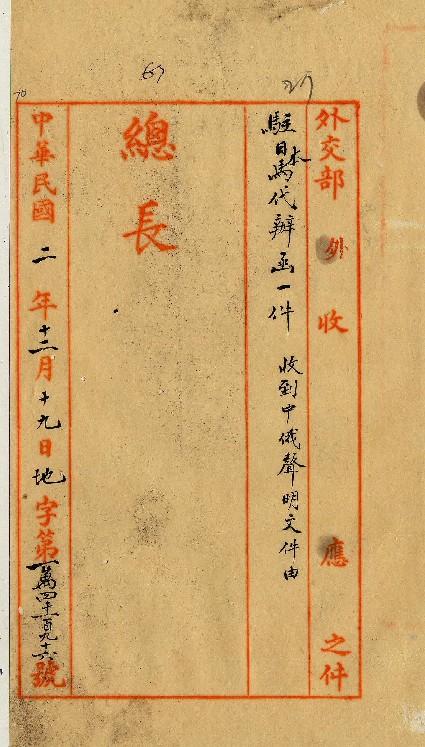 外交部 外 收 應 之件
駐日本馬代辦函一件 收到中俄聲明文件由
總長
中華民國二年十二月十九日地字第一萬四千一百九十六號
27
67
70